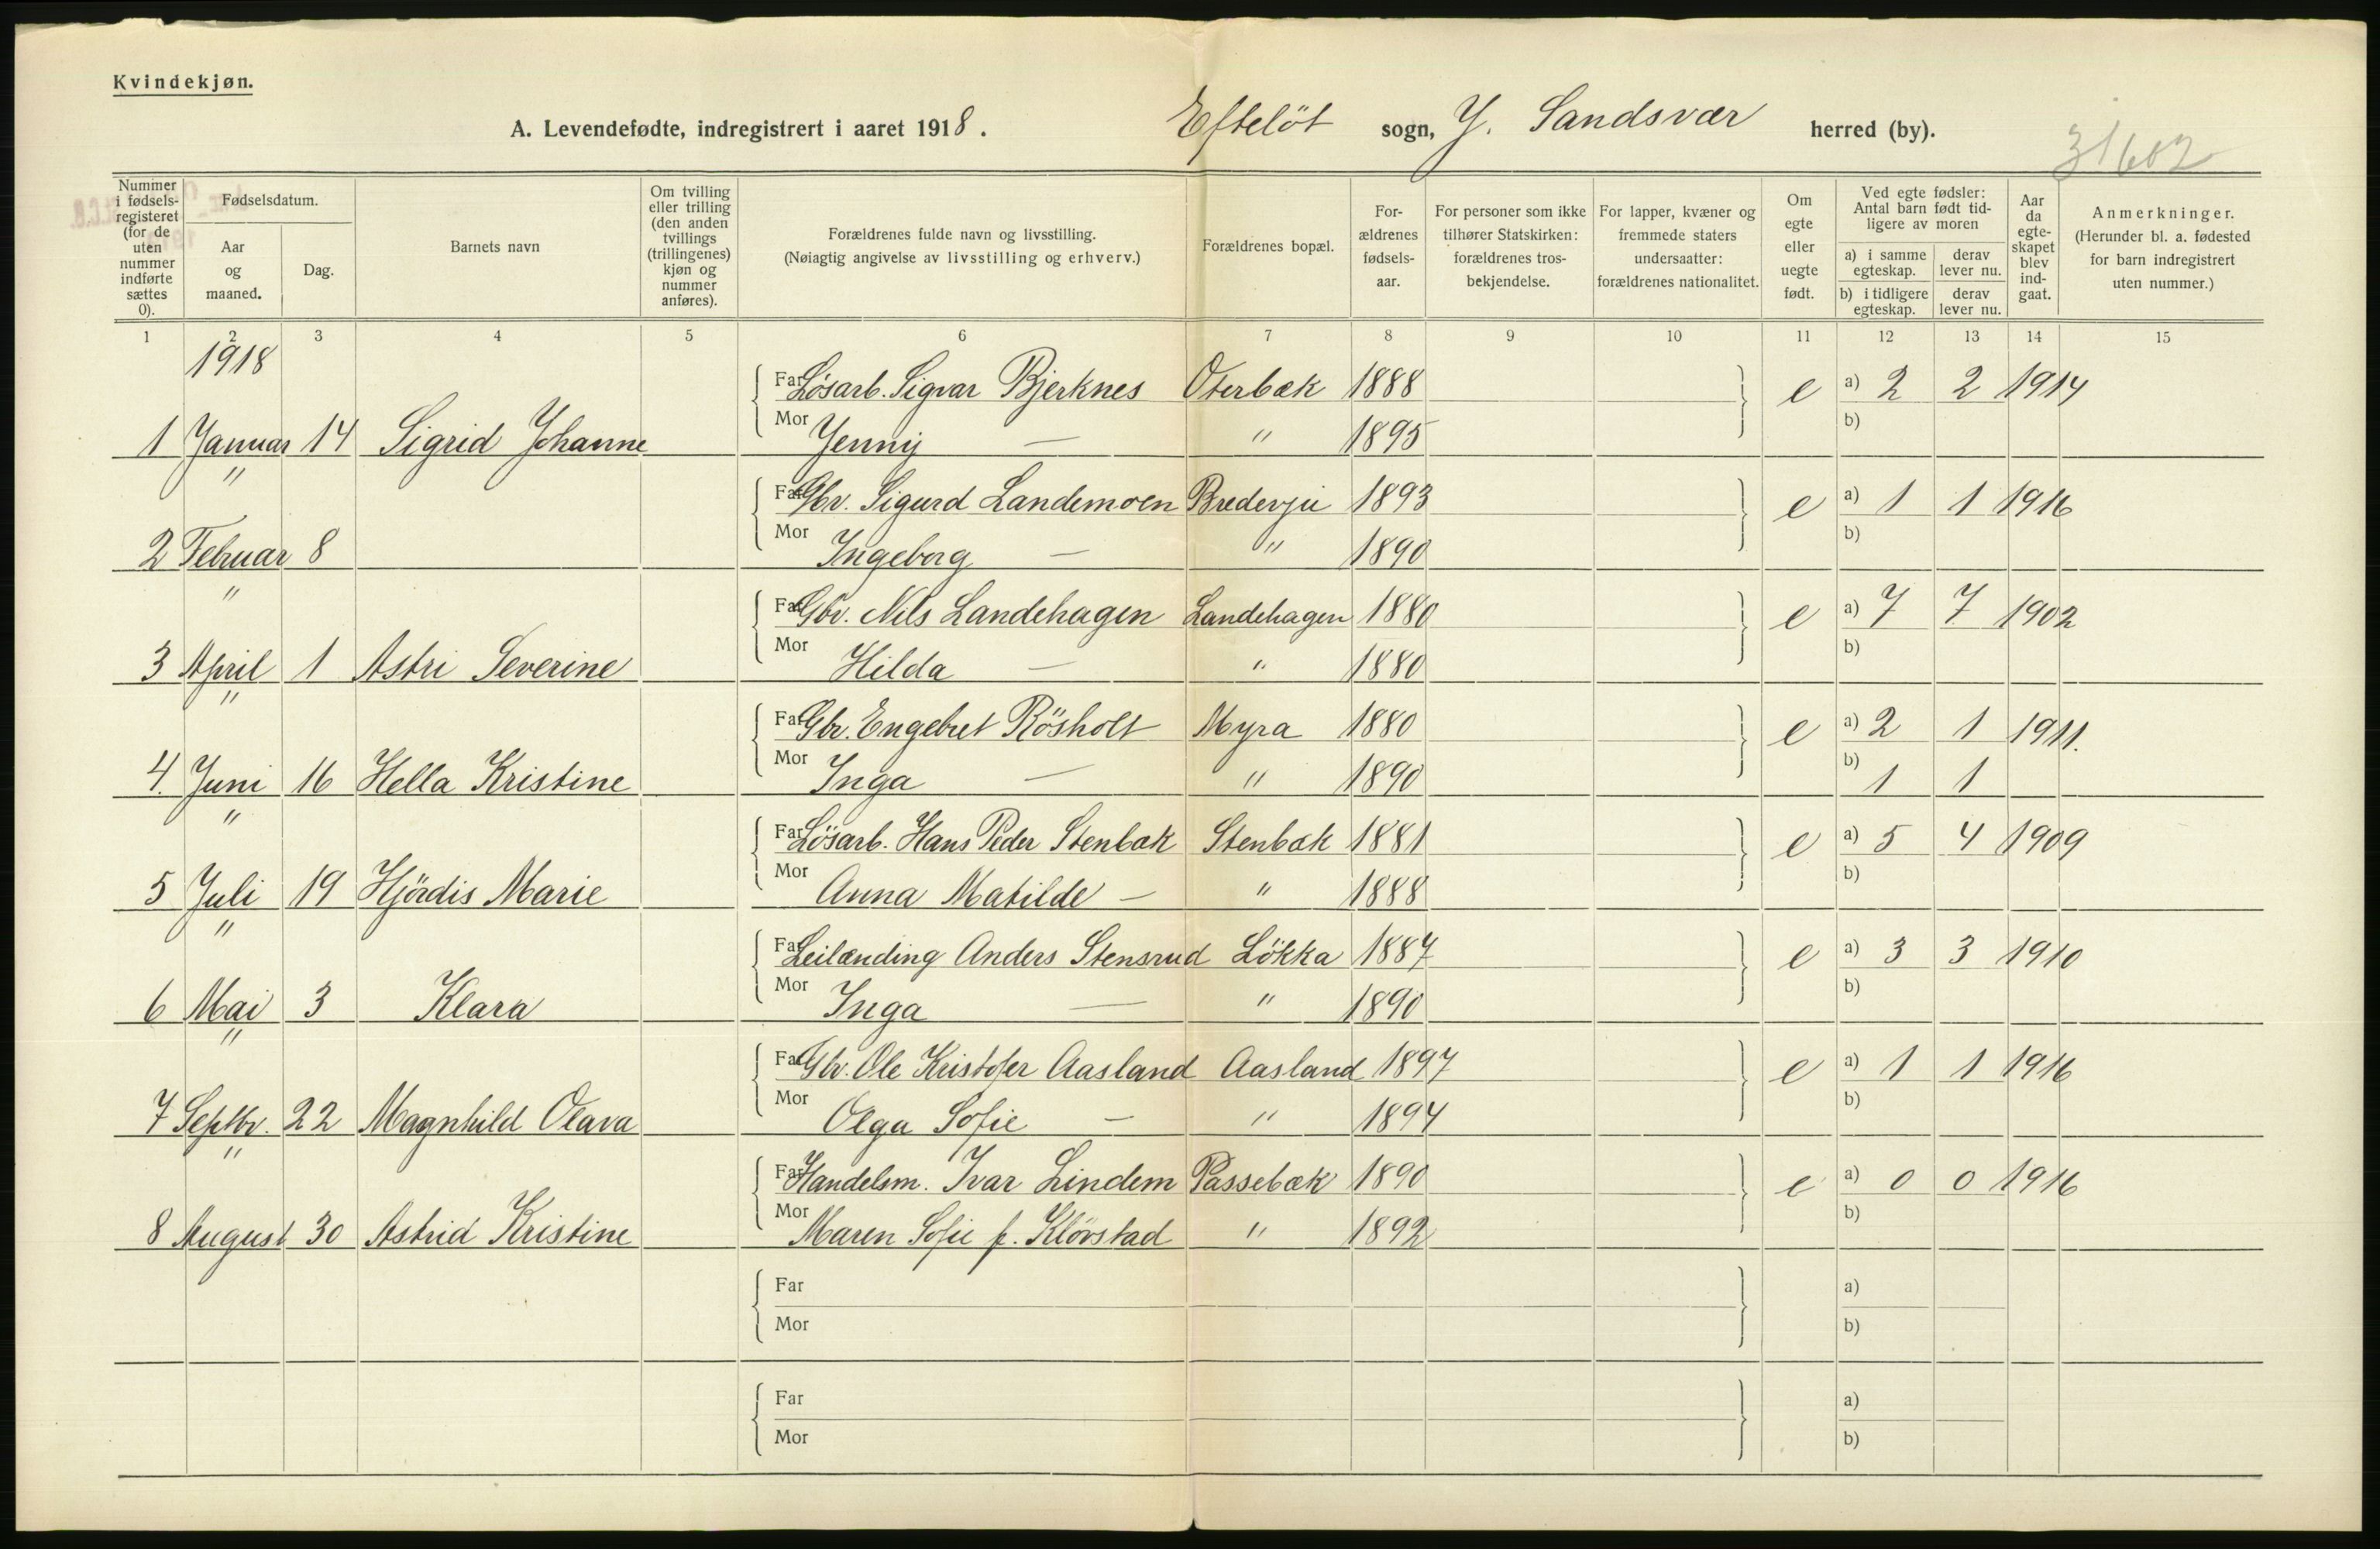 Kvindekjøn.
A. Levendefødte, indregistrert i aaret 1918. Efteløt sogn, Y. Sandsvær herred (by).
31602
Nummer i fødsels-registeret (for de uten nummer indførte sættes 0). Fødselsdatum. Aar og maaned. Dag. Barnets navn Om tvilling eller trilling (den anden tvillings (trillingenes) kjøn og nummer anføres). Forældrenes fulde navn og livsstilling. (Nøiagtig angivelse av livsstilling og erhverv.) Forældrenes bopæl. For-ældrenes fødsels-aar. For personer som ikke tilhører Statskirken: forældrenes tros-bekjendelse. For lapper, kvæner og fremmede staters undersaatter: forældrenes nationalitet. Om egte eller uegte født. Ved egte fødsler: Antal barn født tid-ligere av moren a) i samme egteskap. derav lever nu. b) i tidligere egteskap. derav lever nu. Aar da egte-skapet blev ind-gaat. Anmerkninger. (Herunder bl. a. fødested for barn indregistrert uten nummer.)
1 2 3 4 5 6 7 8 9 10 11 12 13 14 15
1918
Far Løsarb. Sigvar Bjerknes Oterbæk 1888 e a) 2 2 1914
1 Januar 14 Sigrid Johanne Mor Jenny — " 1895 b)
"
Far Gbr. Sigurd Landemoen Bredevju 1893 e a) 1 1 1916
2 Februar 8 Mor Ingeborg — " 1890 b)
"
Far Gbr. Nils Landehagen Landehagen 1880 e a) 7 7 1902
3 April 1 Astri Severine Mor Hilda — " 1880 b)
"
Far Gbr. Engebret Rösholt Myra 1880 e a) 2 1 1911.
4. Juni 16 Hella Kristine Mor Inga — " 1890 b) 1 1
"
Far Lösarb. Hans Peder Stenbæk Stenbæk 1881 e a) 5 4 1909
5 Juli 19 Hjördis Marie Mor Anna Matilde — " 1888 b)
"
Far Leilænding Anders Stensrud Lökka 1887 e a) 3 3 1910
6 Mai 3 Klara Mor Inga — " 1890 b)
"
Far Gbr. Ole Kristofer Aasland Aasland 1897 e a) 1 1 1916
7 Septbr. 22 Magnhild Olava Mor Olga Sofie — " 1894 b)
"
Far Handelsm. Ivar Lindem Passebæk 1890 e a) 0 0 1916
8 August 30 Astrid Kristine Mor Maren Sofie f. Klövstad " 1892 b)
Far a)
Mor b)
Far a)
Mor b)